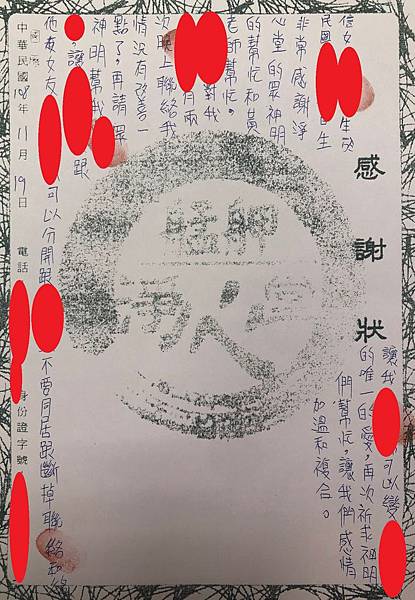 感謝狀
信女生於
民國日生
非常感謝淨
心堂的眾神明
的幫忙和黃
老師幫忙。
對我
有兩
次晚上聯絡我
情況有改善一
點了，再請眾
神明幫我
，讓跟
女友可以分開跟不要同居跟斷掉聯絡
讓我可以變
的唯一的愛，再次祈求神明
們幫忙，讓我們感情
加溫和複合。
中華民國108年11月19日 電話 身份證字號
艋舺